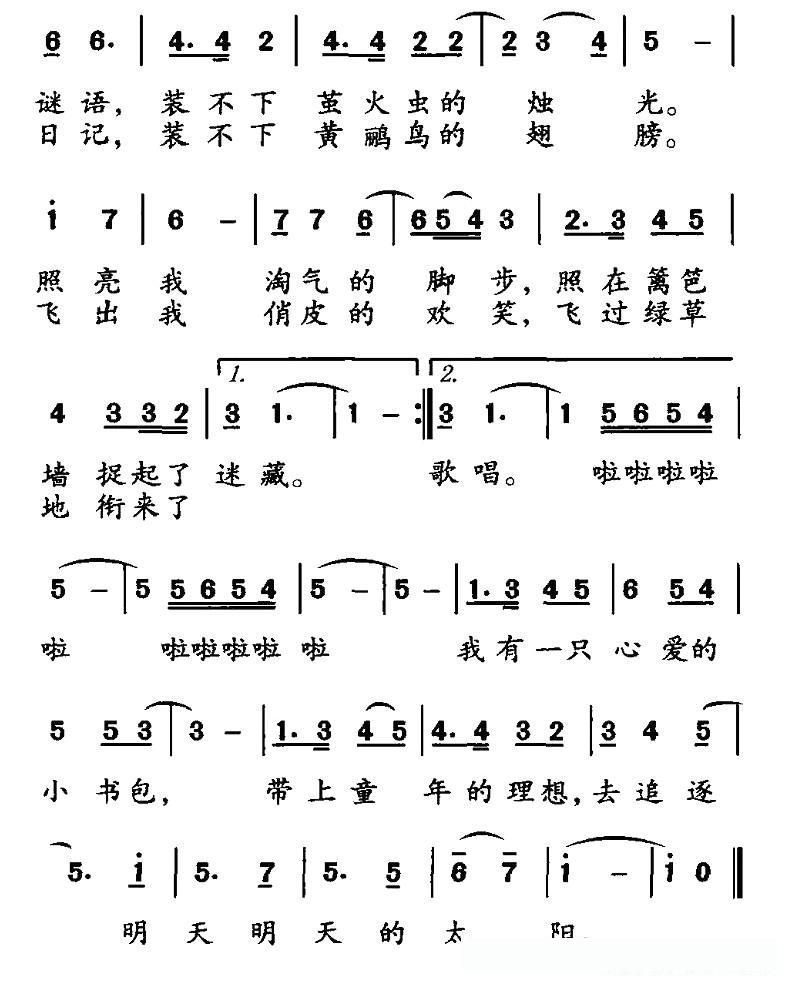 6 6. | 4. 4 2 | 4. 4 2 2 | 2 3 4 | 5 – |
谜语，装不下 萤火虫的 烛 光。
日记，装不下 黄鹂鸟的 翅 膀。
1 7 | 6 – | 7 7 6 | 6 5 4 3 | 2. 3 4 5 |
照亮我 淘气的 脚 步，照在篱笆
飞出我 俏皮的 欢 笑，飞过绿草
1. 2.
4 3 3 2 | 3 1. | 1 – :‖ 3 1. | 1 5 6 5 4 |
墙 捉起了 迷藏。 歌唱。 啦啦啦啦
地 衔来了
5 – | 5 5 6 5 4 | 5 – | 5 – | 1. 3 4 5 | 6 5 4 |
啦 啦啦啦啦 啦 我有一只 心爱的
5 5 3 | 3 – | 1. 3 4 5 | 4. 4 3 2 | 3 4 5 |
小 书包， 带上童 年的理想，去追逐
5. 1 | 5. 7 | 5. 5 | 6 7 | 1 – | 1 0 ‖
明 天明 天的 太 阳